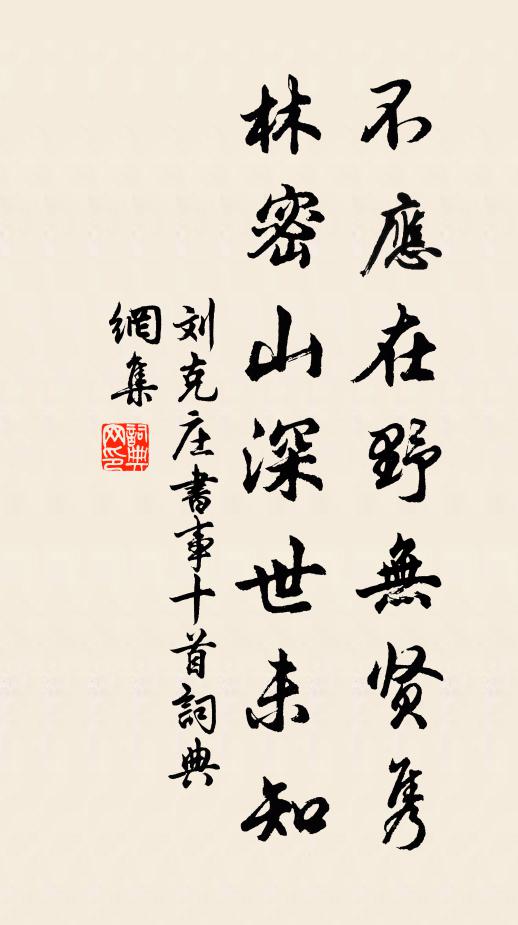 不應在野無贤隽
林密山深世未知
刘克庄書事十首詞典
網集
詞典
网印